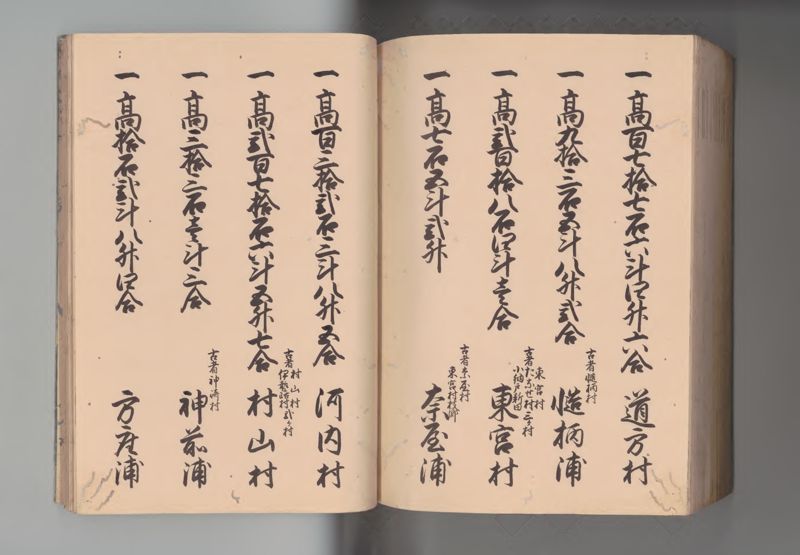 一高百七拾七石六斗四升六合 道方村
一高九拾三石五斗八升弐合 古者慥柄村 慥柄浦
一高弐百拾八石四斗壱合 東宮村 古者 村三ヶ村 小 新田 東宮村
一高七石五斗弐升 古者奈屋村 東宮村 奈屋浦
一高百三拾弐石三斗八升五合 河内村
一高弐百七拾石六斗五升七合 古者 村山村 伊勢 村弐ヶ村 村山村
一高三拾三石壱斗三合 古者神崎村 神前浦
一高拾石弐斗八升四合 方座浦